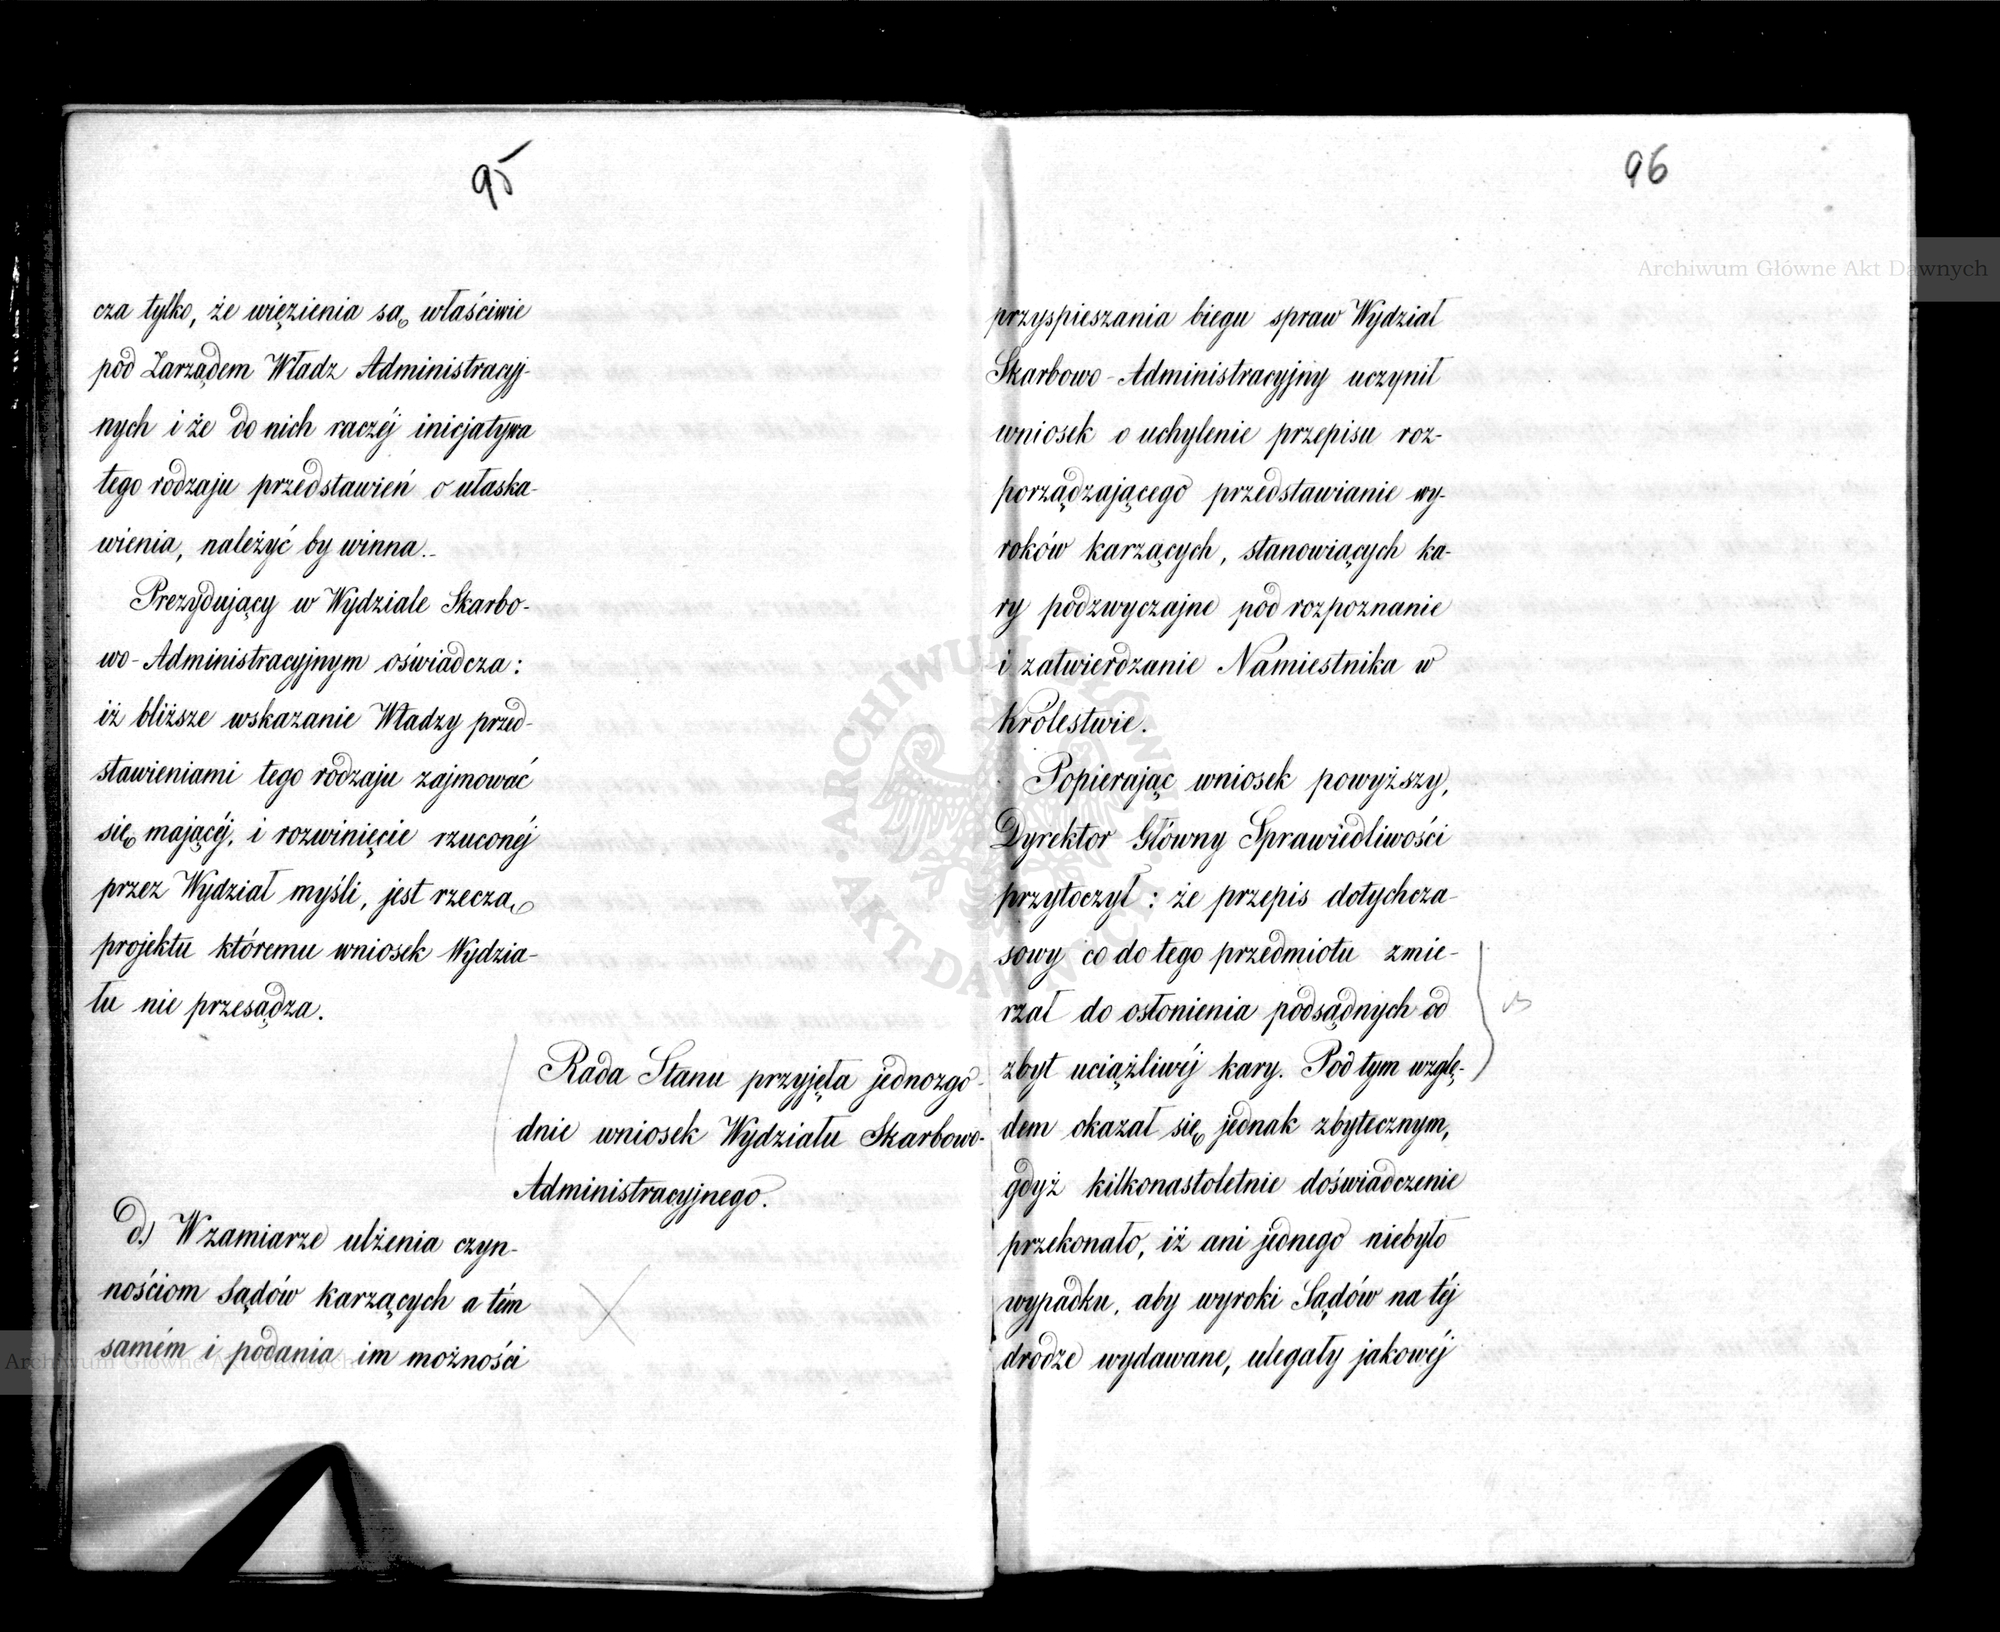 95
cza tylko, że więzienia są właściwie
pod Zarządem Władz Administracyj-
nych i że do nich raczéj inicjatywa
tego rodzaju przedstawień o ułaska-
wienia, należyć by winna.-
Prezydujący w Wydziale Skarbo-
wo-Administracyjnym oświadcza:
iż bliższe wskazanie Władzy przed-
stawieniami tego rodzaju zajmować
się mającéj, i rozwinięcie rzuconéj
przez Wydział myśli, jest rzeczą
projektu któremu wniosek Wydzia-
łu nie przesądza.
Rada Stanu przyjęła jednozgo-
dnie wniosek Wydziału Skarbowo-
Administracyjnego.
d.) W zamiarze ulżenia czyn-
nościom Sądów karzących a tém
samém i podania im możności
96
przyspieszania biegu spraw Wydział
Skarbowo-Administracyjny uczynił
wniosek o uchylenie przepisu roz-
porządzającego przedstawianie wy-
roków karzących, stanowiących ka-
ry podzwyczajne pod rozpoznanie
i zatwierdzanie Namiestnika w
Królestwie.
Popierając wniosek powyższy,
Dyrektor Główny Sprawiedliwości
przytoczył: że przepis dotychcza-
sowy co do tego przedmiotu zmie-
rzał do osłonienia podsądnych od
zbyt uciążliwéj kary. Pod tym wzglę-
dem okazał się jednak zbytecznym,
gdyż kilkonastoletnie doświadczenie
przekonało, iż ani jednego niebyło
wypadku, aby wyroki Sądów na téj
drodze wydawane, ulegały jakowéj
Archiwum Główne Akt Dawnych
ARCHIWUM GŁÓWNE AKT DAWNYCH
Archiwum Główne Akt Dawnych